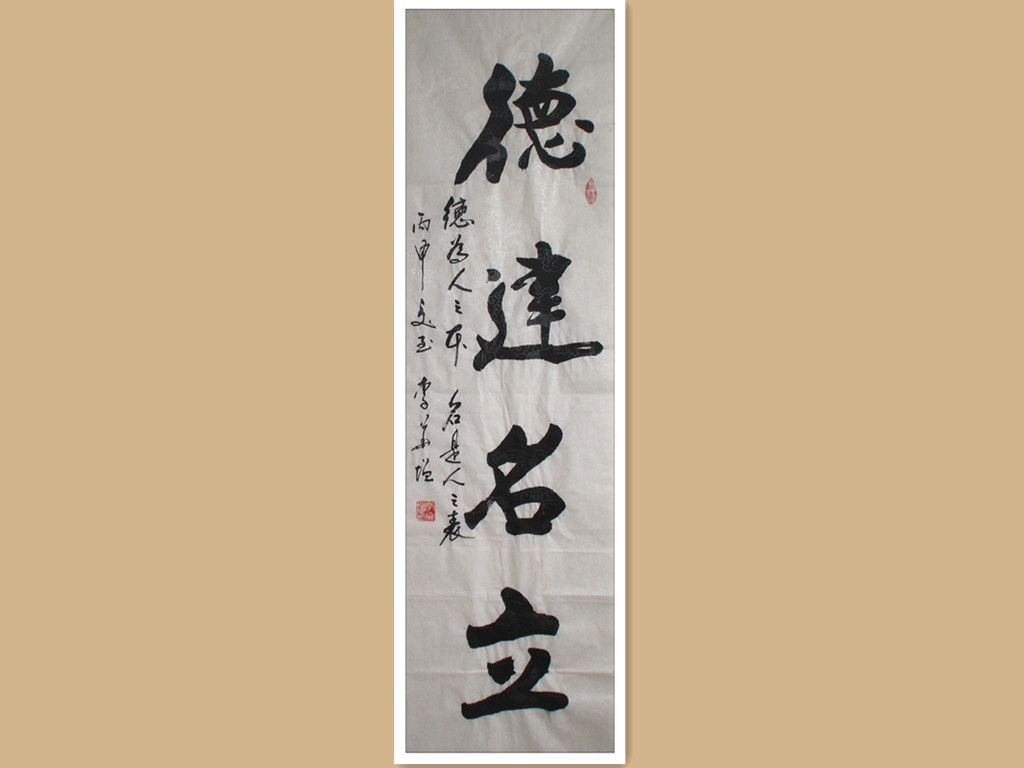 德建名立
德为人之本 名是人之表
丙申 李